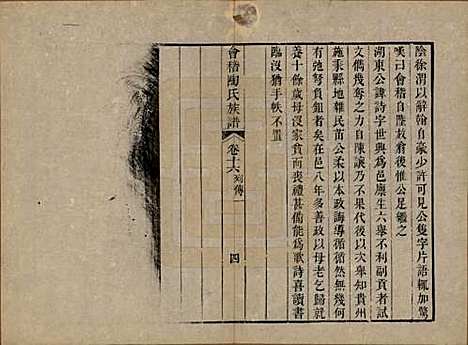 陰徐渭以辭翰自豪少許可見公隻字片語輒加驚
嘆曰會稽自陸放翁後惟公足繼之
湖東公諱詩字世興爲邑廪生六舉不利副貢者試
文偶幾奪之力自陳讓乃不果代後以次舉知貴州
施秉縣地雜民苗公柔以本政誨導循循然無幾何
有弛弩負鉏者矣在邑八年多善政以母老乞歸就
養十餘歲母沒家貧而喪禮甚備能爲歌詩喜讀書
臨沒猶手帙不置
會稽陶氏族譜
卷十六 列傳一
四